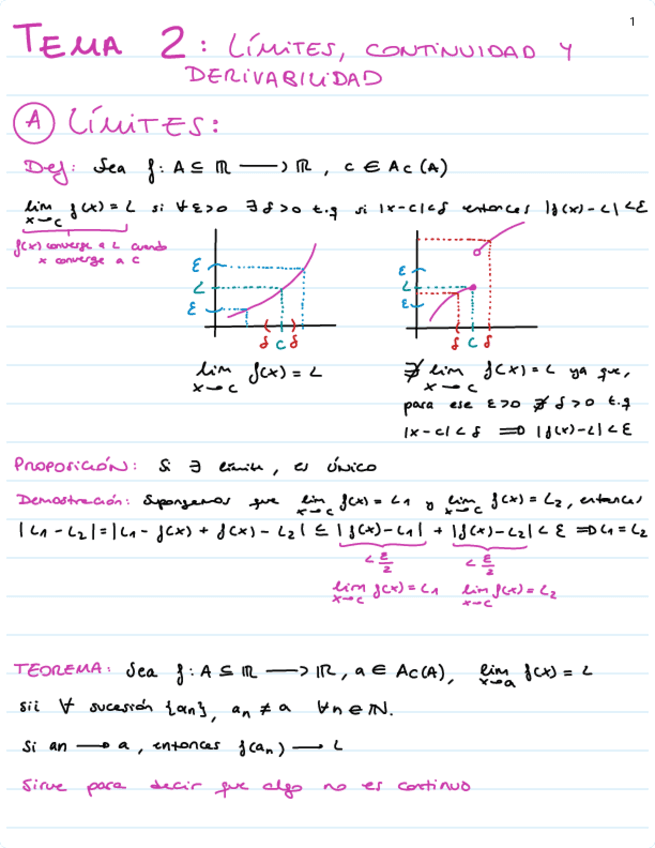 1
TEMA 2: LÍMITES, CONTINUIDAD Y
DERIVABILIDAD
A LÍMITES:
Def: Sea f: A ⊆ ℝ → ℝ, c ∈ Ac(A)
lim x→c f(x) = L si ∀ε>0 ∃δ>0 t.q si |x-c|<δ entonces |f(x)-L|<ε
f(x) converge a L cuando
x converge a c
ε
L
ε
δ c δ
ε
L
ε
δ c δ
lim x→c f(x) = L
∄ lim x→c f(x) = L ya que,
para ese ε>0 ∄ δ>0 t.q
|x-c|<δ ⇒ |f(x)-L|<ε
PROPOSICIÓN: Si ∃ límite, es único
Demostración: Supongamos que lim x→c f(x) = L1 y lim x→c f(x) = L2, entonces
|L1-L2| = |L1-f(x)+f(x)-L2| ≤ |f(x)-L1| + |f(x)-L2| < ε ⇒ L1=L2
< ε/2 < ε/2
lim x→c f(x) = L1 lim x→c f(x) = L2
TEOREMA: Sea f: A ⊆ ℝ → ℝ, a ∈ Ac(A), lim x→a f(x) = L
sii ∀ sucesión {an}, an ≠ a ∀n ∈ ℕ.
Si an → a, entonces f(an) → L
Sirve para decir que algo no es continuo